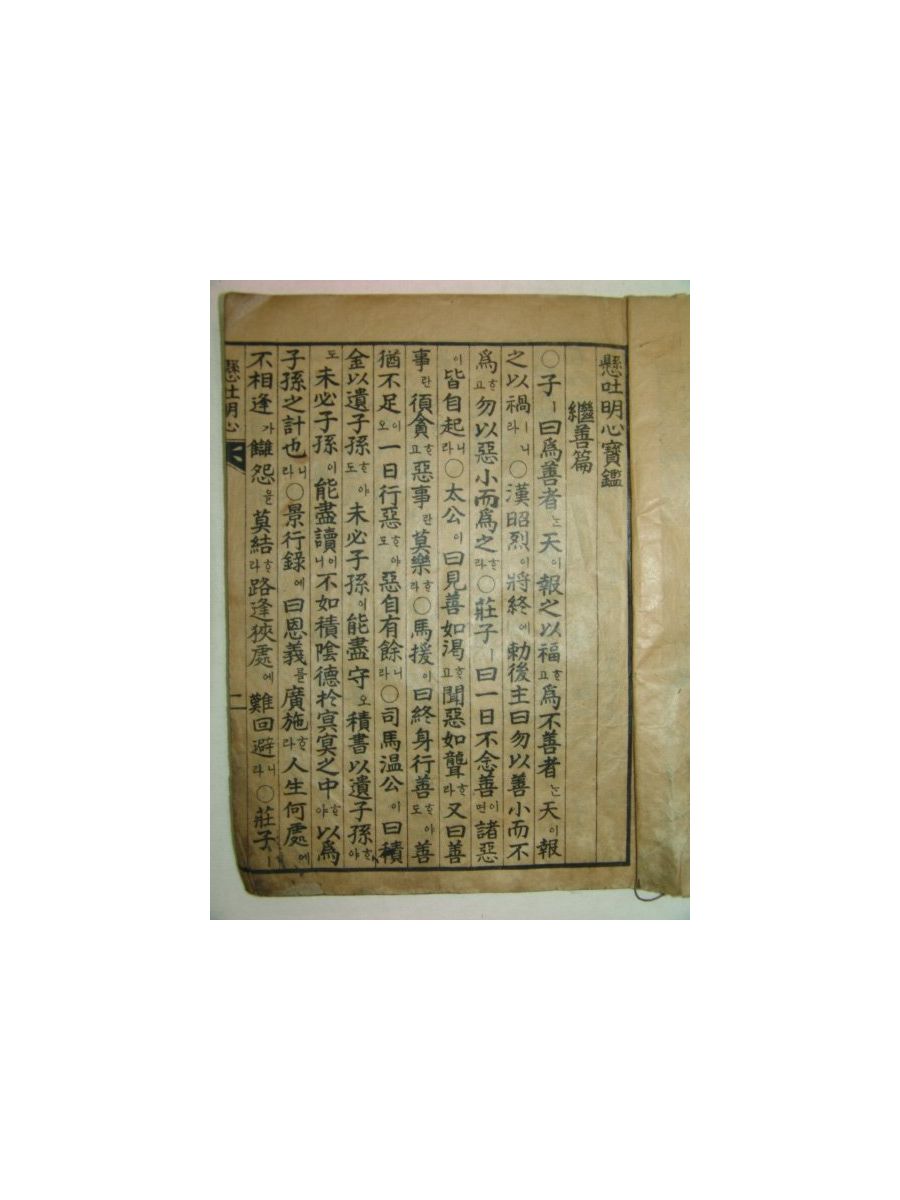 懸吐明心寶鑑
繼善篇
○子ㅣ曰爲善者ᄂᆞᆫ天이報之以福ᄒᆞ고爲不善者ᄂᆞᆫ天이報
之以禍ㅣ니라○漢昭烈이將終에勅後主曰勿以善小而不
爲ᄒᆞ고勿以惡小而爲之ᄒᆞ라○莊子ㅣ曰一日不念善이면諸惡
이皆自起니라○太公이曰見善如渴ᄒᆞ고聞惡如聾ᄒᆞ라又曰善
事란須貪ᄒᆞ고惡事란莫樂ᄒᆞ라○馬援이曰終身行善ᄒᆞ야도善
猶不足이오一日行惡ᄒᆞ야도惡自有餘니라○司馬温公이曰積
金以遺子孫ᄒᆞ야도未必子孫이能盡守오積書以遺子孫ᄒᆞ야
도未必子孫이能盡讀이니不如積陰德於冥冥之中ᄒᆞ야以爲
子孫之計也니라○景行錄에曰恩義를廣施ᄒᆞ라人生何處에
不相逢가讎怨을莫結ᄒᆞ라路逢狹處에難回避니라○莊子ㅣ
懸吐明心
一